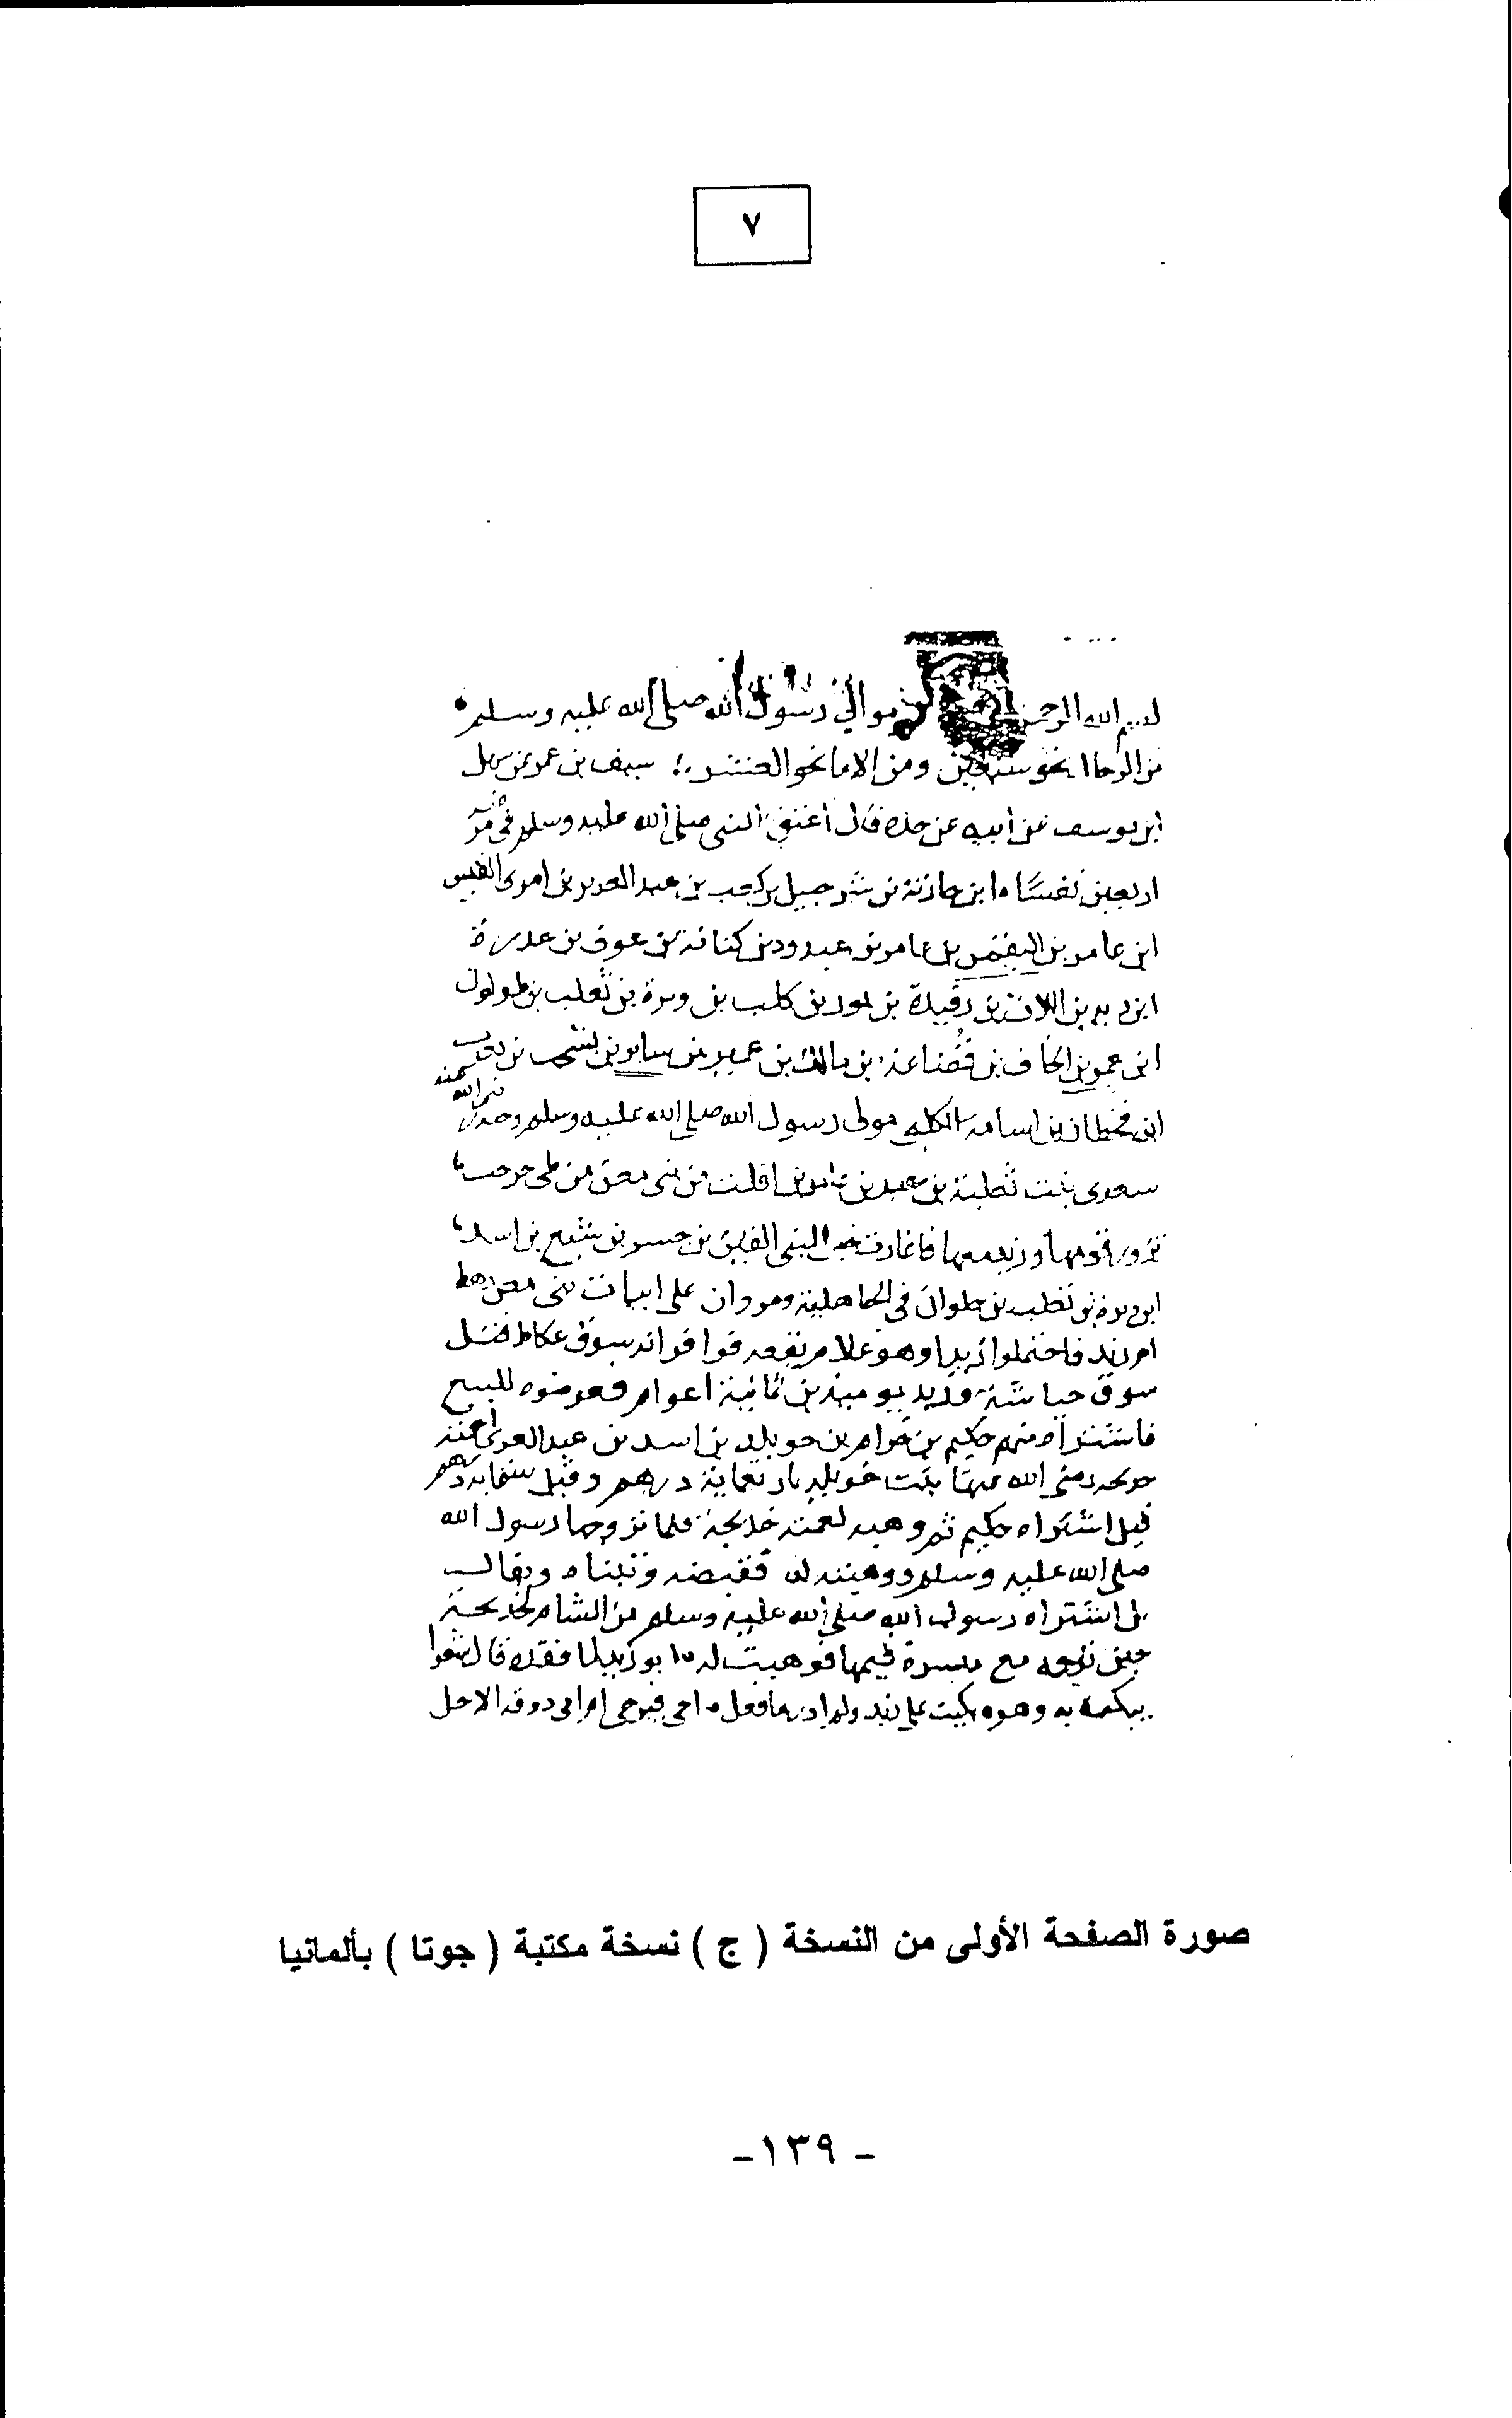 ٧
بسم الله الرحمن موالي رسول الله صلى الله عليه وسلم
من الرجال نحو ومن الاما نحو العشر سيف بن عمر عن سهل
ابن يوسف عن ابيه عن جده قال اعتق النبي صلى الله عليه وسلم في
اربعين نفسًا ابن حارثة بن شرحبيل بن كعب بن عبد العزيز بن امرى القيس
ابن عامر بن النعمن بن عامر بن عبدود بن كنانة بن عوف بن عذرة
ابن زيد بن اللات بن رفيدة بن ثور بن كلب بن وبرة بن ثعلب بن حلوان
ابن عمرو بن الحاف بن قضاعة بن مالك بن عمير بن سابو بن يشجب بن يعرب
ابن قحطان بن اسامة الكلبي مولى رسول الله صلى الله عليه وسلم
سعدى بنت ثعلبة بن عبد بن عامر بن افلت من بنى معن من طى خرجت
تزور قومها وزيد معها فاغارت خيل لبنى القين بن جسر بن شيع بن اسد
ابن وبرة بن تغلب بن حلوان في الجاهلية ومروان على ابيات بنى معن رهط
ام زيد فاحتملوا زيدا وهو غلام يفعه فوافوا به سوق عكاظ فتل
سوق حباشة وزيد يوميذ بن ثمانية اعوام فعرضوه للبيع
فاشتراه منهم حكيم بن حزام بن خويلد بن اسد بن عبد العزى لعمته
خديجه رضى الله عنها بنت خويلد باربعماية درهم وقيل درهم
قيل اشتراه حكيم ثم وهبه لعمته خديجة فلما تزوجها رسول الله
صلى الله عليه وسلم ووهبته له فقبضه وتبناه ويقال
بل اشتراه رسول الله صلى الله عليه وسلم من الشام لخديجة
حين توجه مع ميسرة قيمها فوهبته له ابو زيد لما فقده قال شعرا
يبكيه به وهو بكيت على زيد ولم ادر ما فعل احى فيرجى ام اتى دونه الاجل
صورة الصفحة الأولى من النسخة ( ج ) نسخة مكتبة ( جوتا ) بألمانيا
- ١٣٩ -